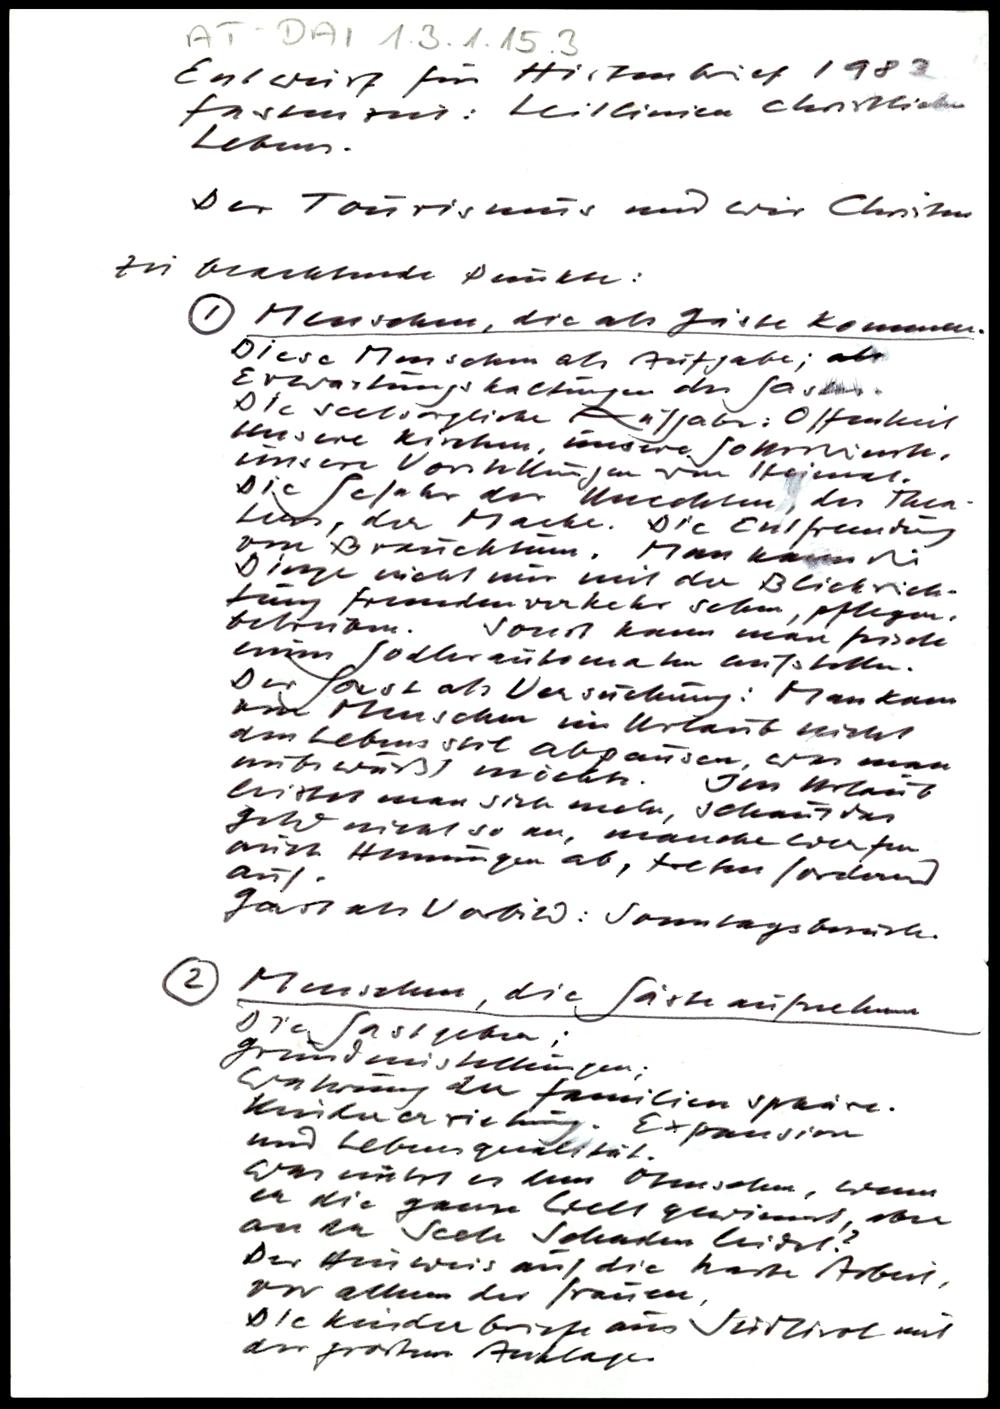 AT-DAI 1.3.1.15.3
Entwurf für Hirtenbrief 1983
Fastenzeit: Leitlinien christlichen
Lebens.
Der Tourismus und wir Christen
Zu beachtende Punkte:
① Menschen, die als Gäste kommen.
Diese Menschen als Aufgabe; als
Erwartungshaltungen des Gastes.
Die seelsorgliche Aufgabe: Offenheit
Unsere Kirchen, unsere Gottesdienste,
unsere Vorstellungen von Heimat.
Die Gefahr der Unechten, des Thea-
ters, der Mache. Die Entfremdung
von Brauchtum. Man kann die
Dinge nicht nur mit der Blickrich-
tung Fremdenverkehr sehen, pflegen,
betreiben. Sonst kann man gerade
einen Jodlerautomaten aufstellen.
Der Gast als Versuchung: Man kann
von Menschen im Urlaub nicht
den Lebensstil abpausen, den man
möchte. Im Urlaub
leistet man sich mehr, schaut das
Geld nicht so an, manche werfen
auch Hemmungen ab, treten fordernd
auf.
Gast als Vorbild: Sonntagsbesuch.
② Menschen, die Gäste aufnehmen
Die Gastgeber;
Grundeinstellungen;
Wahrung der Familiensphäre.
Kindererziehung. Expansion
und Lebensqualität.
Was nützt es dem Menschen, wenn
er die ganze Welt gewinnt, aber
an der Seele Schaden leidet?
Der Hinweis auf die harte Arbeit,
vor allem der Frauen,
Die Kinderbriefe aus Südtirol mit
der großen Anklage.